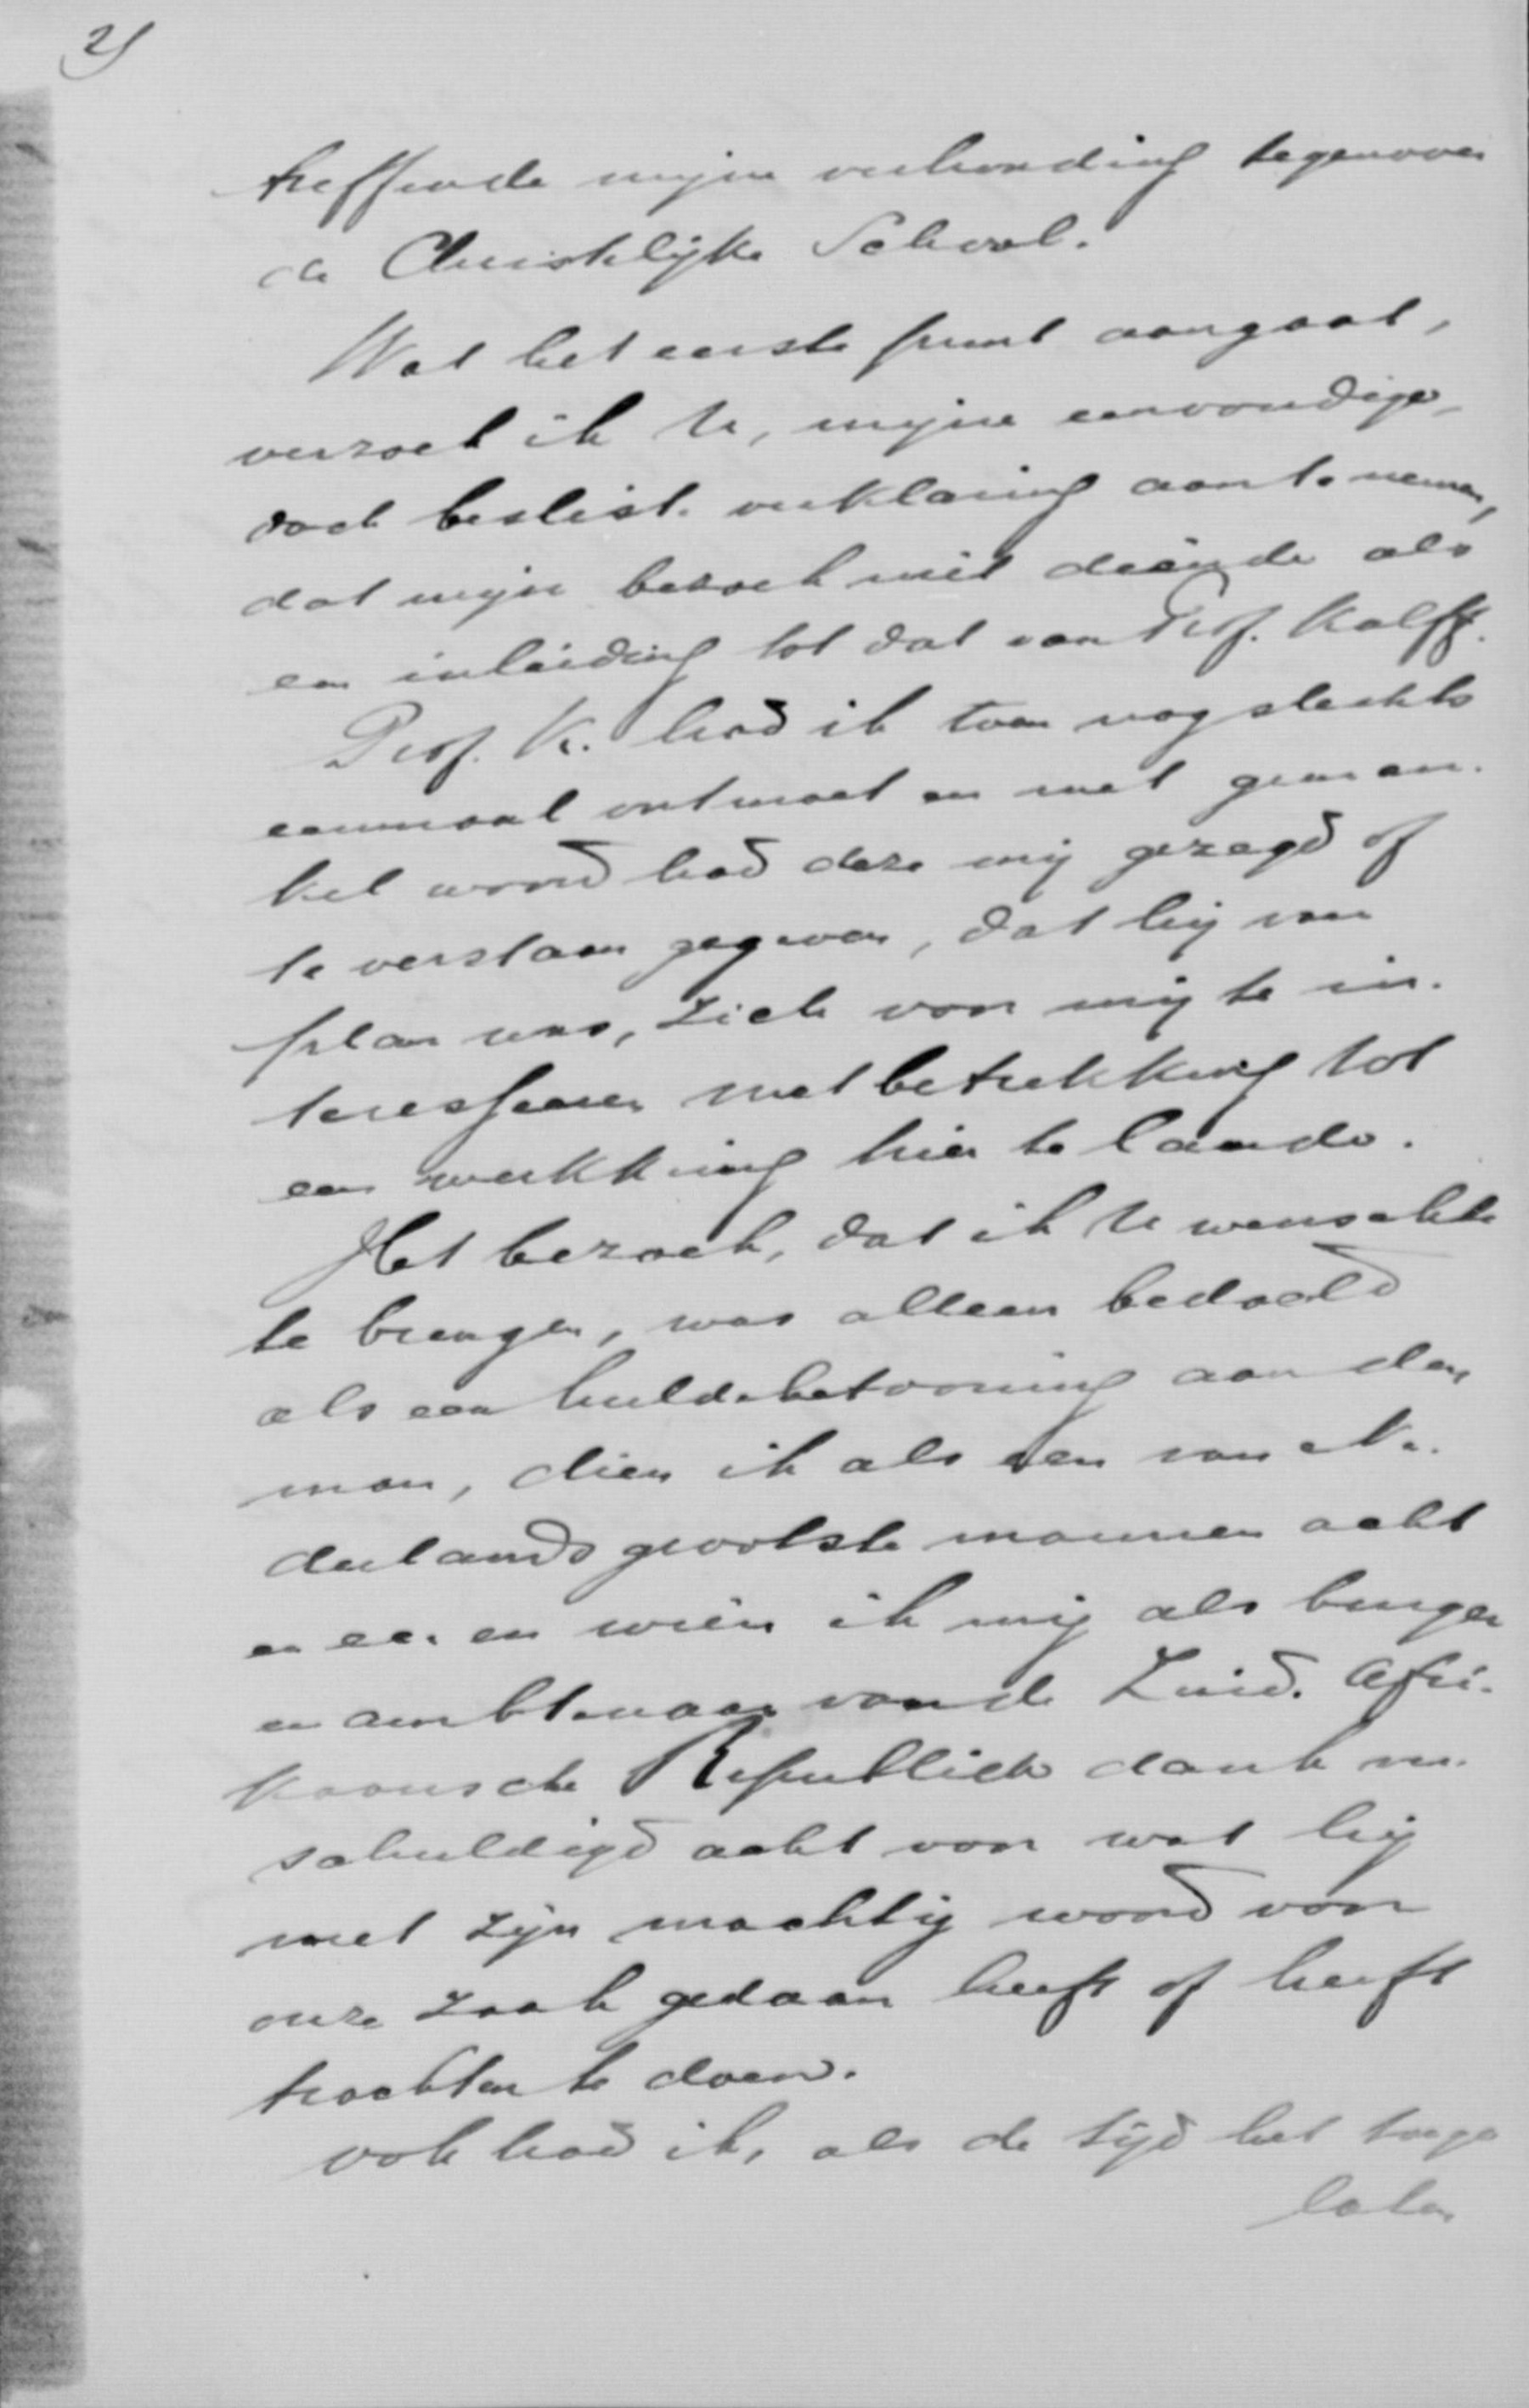 2)
treffende mijne verhouding tegenover
de Christelijke School.
Wat het eerste punt aangaat,
verzoek ik U, mijne eenvoudige,
doch besliste verklaring aan te nemen,
dat mijn bezoek niet diende als
een inleiding tot dat van Prof. Kalff.
Prof. K. had ik toen nog slechts
eenmaal ontmoet en met geen en-
kel woord had deze mij gezegd of
te verstaan gegeven, dat hij van
plan was, zich voor mij te in-
teresseeren met betrekking tot
een werkkring hier te lande.
Het bezoek, dat ik U wenschte
te brengen, was alleen bedoeld
als een huldebetooning aan den
man, dien ik als een van Ne-
derlands grootste mannen acht
en eer en wien ik mij als burger
en ambtenaar van de Zuid-Afri-
kaansche Republiek dank ver-
schuldigd acht voor wat hij
met zijn machtig woord voor
onze zaak gedaan heeft of heeft
trachten te doen.
Ook had ik, als de tijd het toege
laten